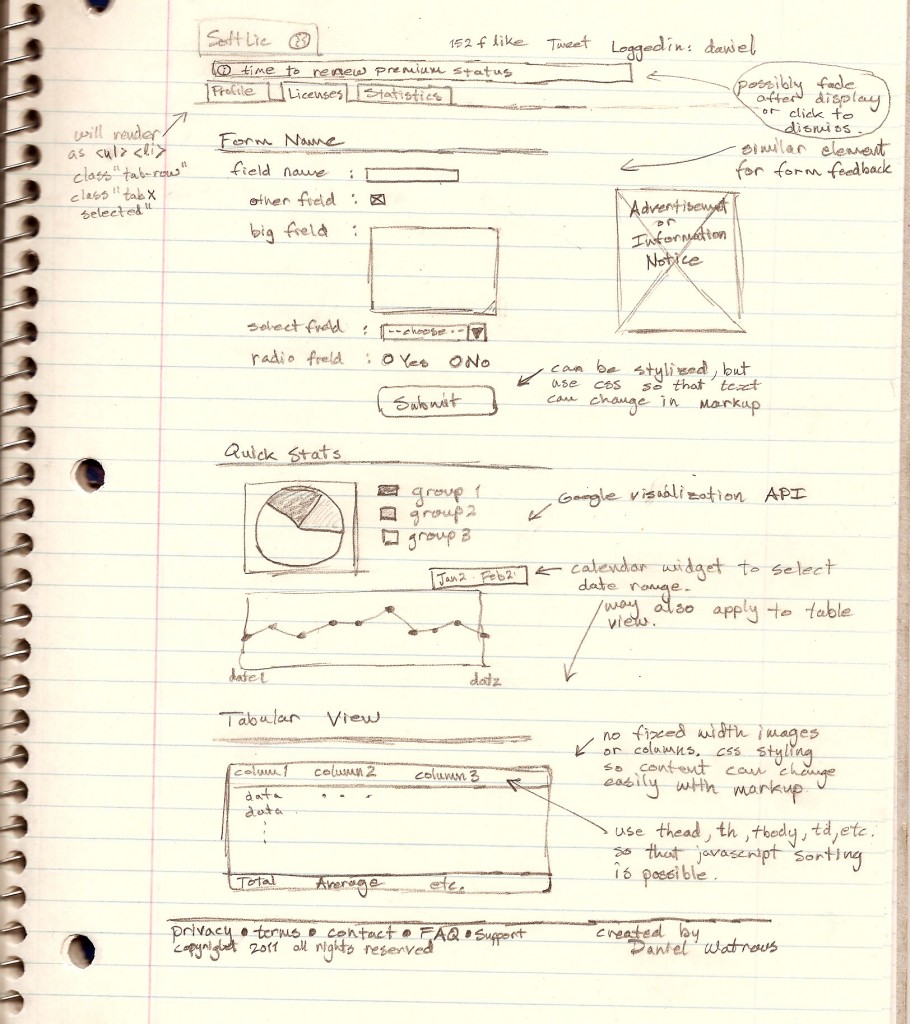 SoftLic
152 f like Tweet Logged in: daniel
time to renew premium status
Profile Licenses Statistics
possibly fade
after display
or click to
dismiss.
will render
as <ul> <li>
class "tab-row"
class "tab X
selected"
similar element
for form feedback
Form Name
field name :
other field :
big field :
Advertisemet
or
Information
Notice
select field : --choose--
radio field : Yes No
Submit
can be stylized, but
use css so that text
can change in markup
Quick Stats
group 1
group 2
group 3
Google visualization API
Jan2 - Feb2
calendar widget to select
date range.
may also apply to table
view.
date1 dat2
Tabular View
no fixed width images
or columns. css styling
so content can change
easily with markup
colum1 column2 column3
data . . .
data
use thead, th, tbody, td, etc.
so that javascript sorting
is possible.
Total Average etc.
privacy • terms • contact • FAQ • Support
copyright 2011 all rights reserved
created by
Daniel Watrous